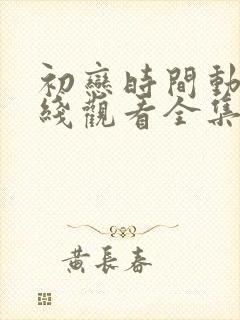 初戀時間動
綫觀看全集
黃長春